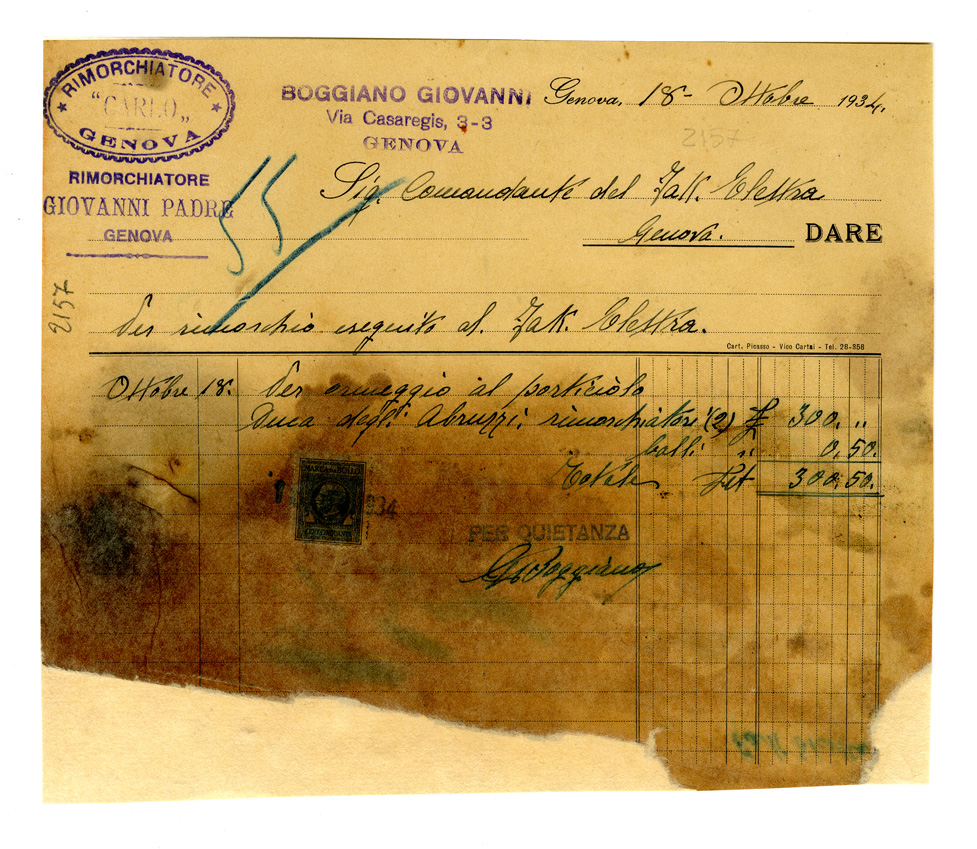 RIMORCHIATORE
"CARLO„
GENOVA
RIMORCHIATORE
GIOVANNI PADRE
GENOVA
BOGGIANO GIOVANNI
Via Casaregis, 3-3
GENOVA
Genova, 18- Ottobre 1934.
2157
55
Sig. Comandante del Yak. Elettra
Genova. DARE
2157
Per rimorchio eseguito al. Yak. Elettra.
Cart. Picasso - Vico Cartai - Tel. 28-858
Ottobre 18. Per ormeggio al porticiolo
Duca degli Abruzzi rimorchiatori (2) £ 300. „
bolli „ 0,50.
Totale £it 300,50.
MARCA DA BOLLO
934
PER QUIETANZA
G Boggiano